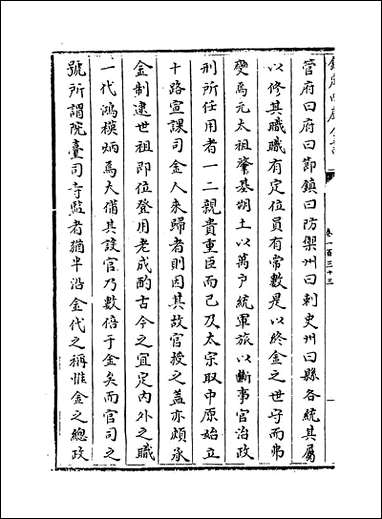 欽定四庫全書
卷一百三十三
管府曰府曰節鎮曰防禦州曰刺史州曰縣各統其屬
以修其職職有定位員有常數是以終金之世守而弗
變焉元太祖肇基朔土以萬戸統軍旅以斷事官治政
刑所任用者一二親貴重臣而已及太宗取中原始立
十路宣課司金人來歸者則因其故官授之蓋亦頗承
金制逮世祖即位登用老成酌古今之宜定內外之職
一代鴻模炳焉大備其設官乃數倍于金矣而官司之
號所謂院臺司寺監者猶半沿金代之稱惟金之總政